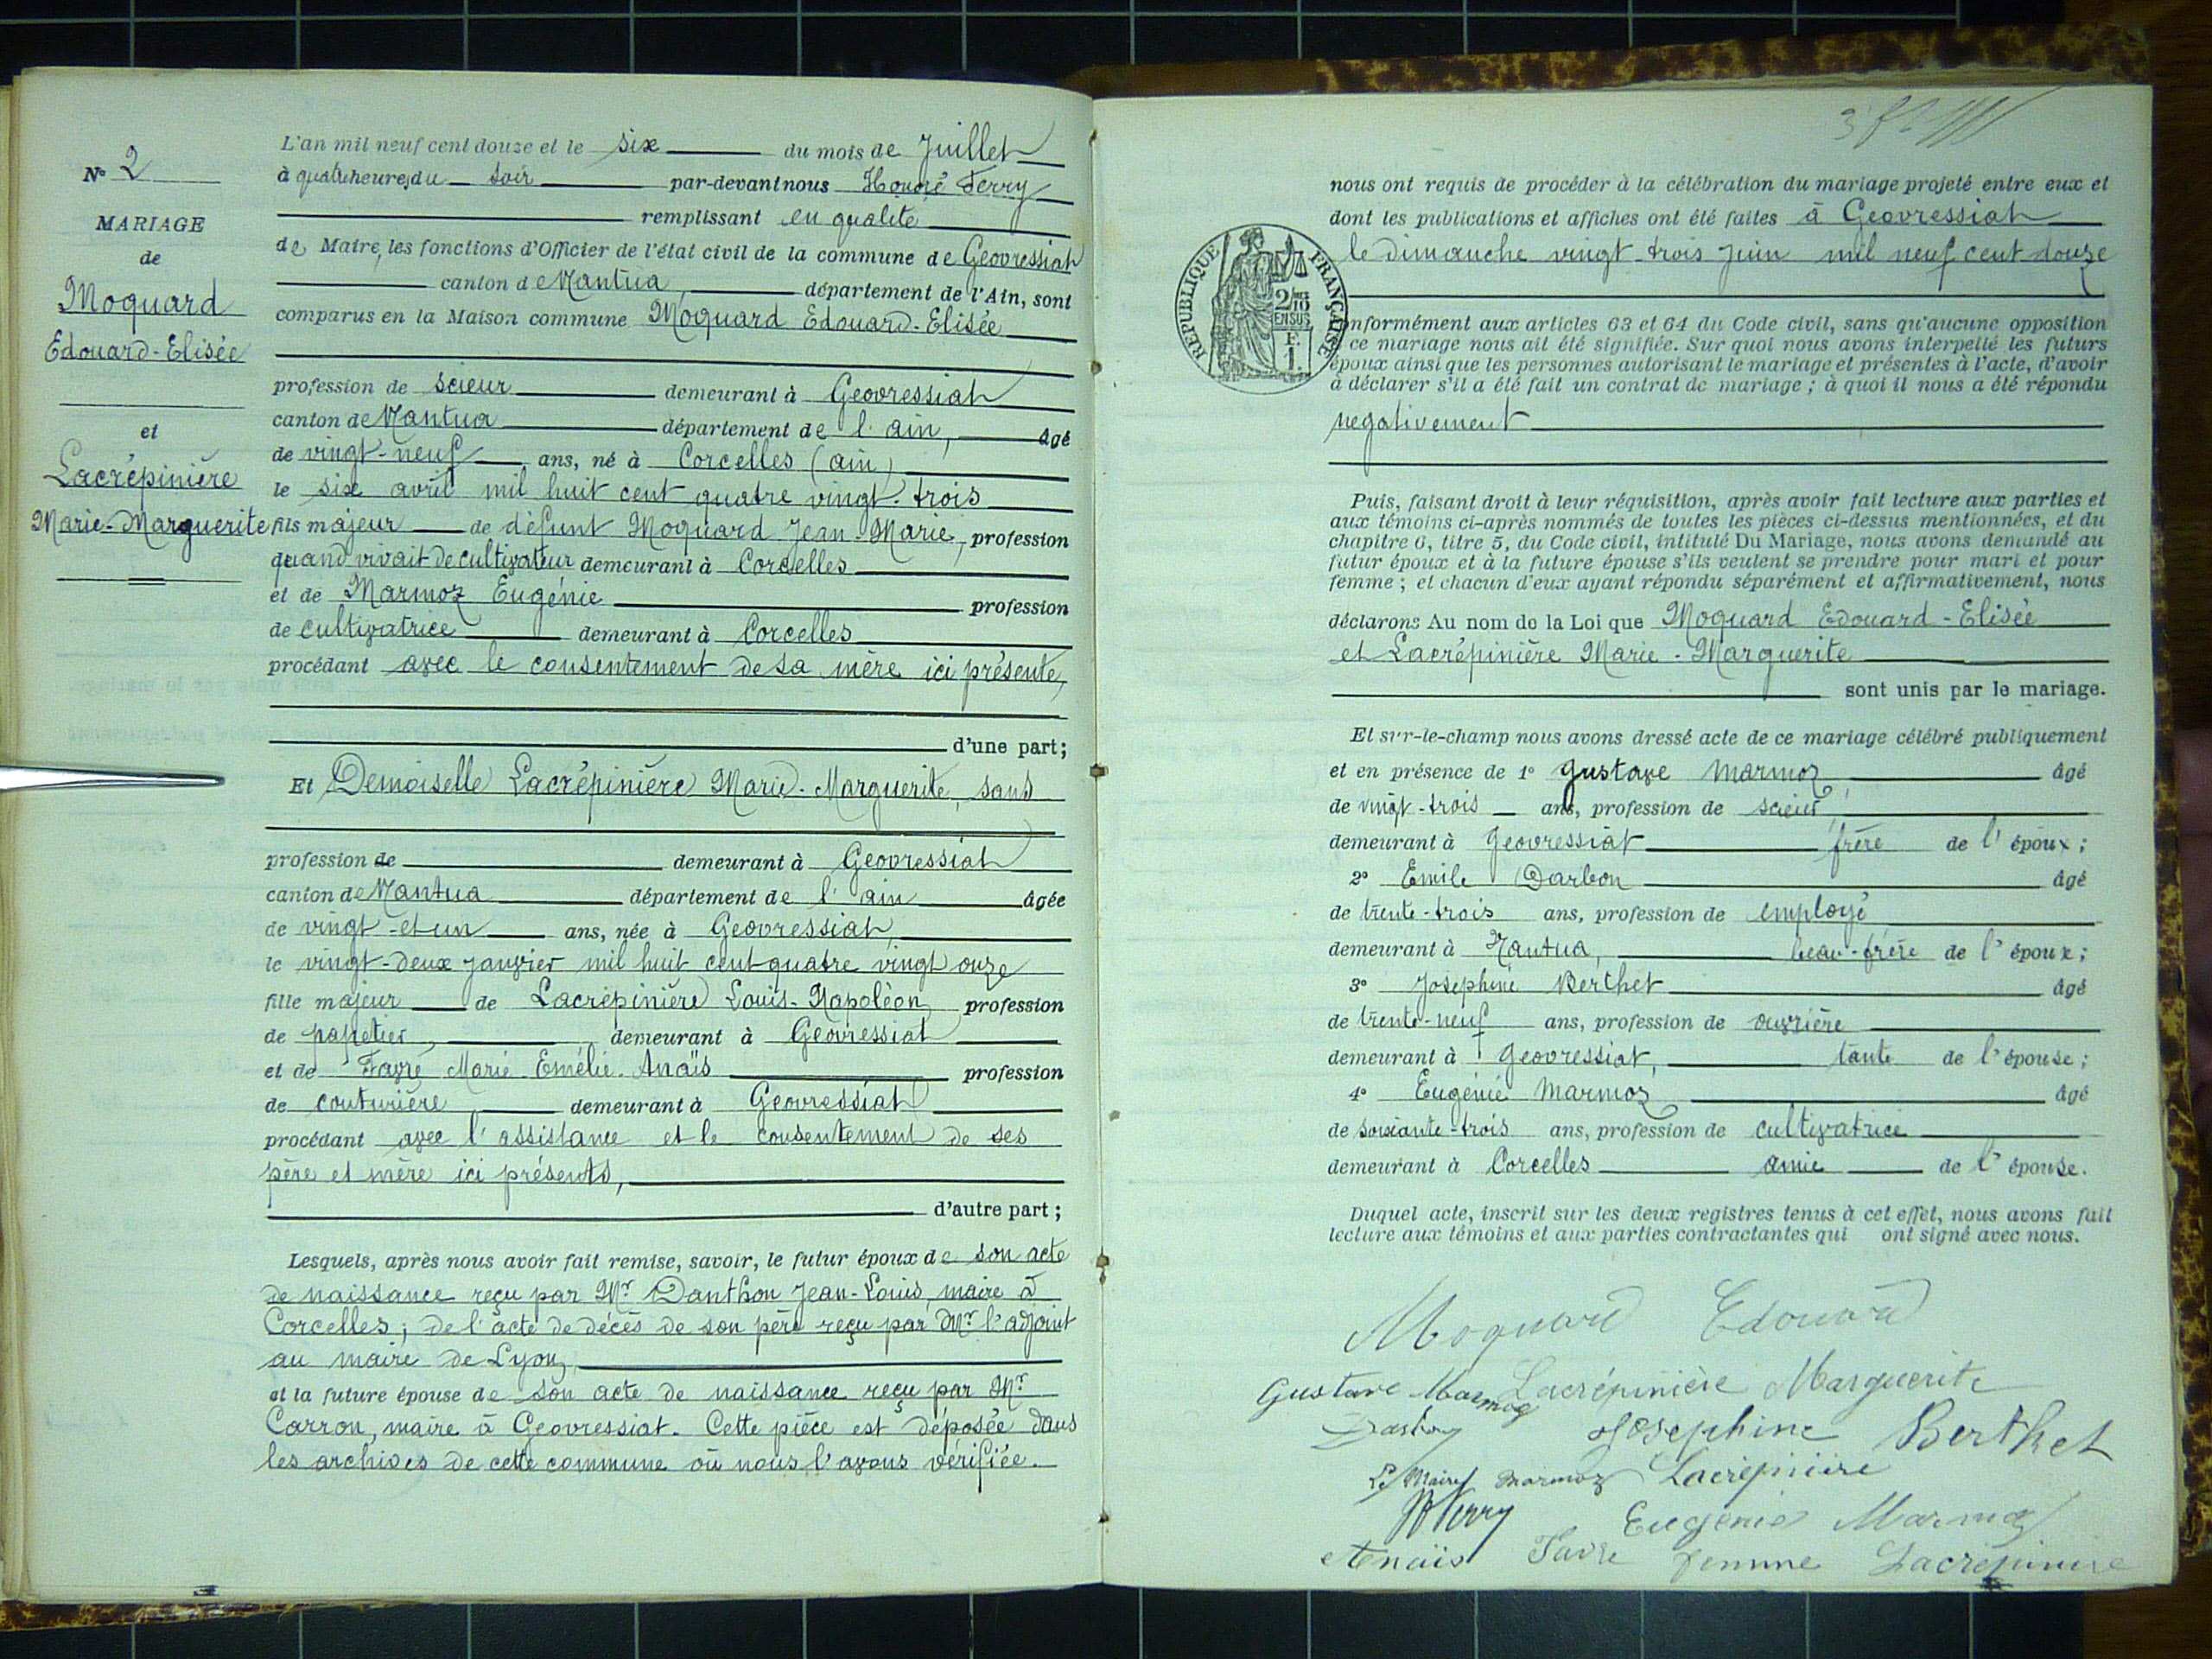 N° 2
MARIAGE
de
Moquard
Edouard-Elisée
et
Lacrépinière
Marie-Marguerite
L'an mil neuf cent douze et le six du mois de Juillet
à quatre heures du soir par-devant nous Honoré Ferry
remplissant en qualité
de Maire, les fonctions d'Officier de l'état civil de la commune de Geovressiat
canton de Nantua, département de l'Ain, sont
comparus en la Maison commune Moquard Edouard-Elisée
profession de scieur demeurant à Geovressiat
canton de Nantua département de l'ain, âgé
de vingt-neuf ans, né à Corcelles (ain)
le six avril mil huit cent quatre vingt-trois
fils majeur de défunt Moquard Jean-Marie, profession
quand vivait de cultivateur demeurant à Corcelles
et de Marmoz Eugénie profession
de cultivatrice demeurant à Corcelles
procédant avec le consentement de sa mère ici présente,
d'une part;
Et Demoiselle Lacrépinière Marie-Marguerite, sans
profession de demeurant à Geovressiat
canton de Nantua département de l'ain âgée
de vingt-et un ans, née à Geovressiat,
le vingt-deux janvier mil huit cent quatre vingt onze
fille majeur de Lacrépinière Louis-Napoléon, profession
de papetier, demeurant à Geovressiat
et de Favre Marie Emélie-Anaïs profession
de couturière, demeurant à Geovressiat
procédant avec l'assistance et le consentement de ses
père et mère ici présents,
d'autre part;
Lesquels, après nous avoir fait remise, savoir, le futur époux de son acte
de naissance reçu par Mr Danthon Jean-Louis, maire à
Corcelles; de l'acte de décès de son père reçu par Mr l'adjoint
au maire de Lyon,
et la future épouse de son acte de naissance reçu par Mr
Carron, maire à Geovressiat. Cette pièce est déposée dans
les archives de cette commune où nous l'avons vérifiée.
nous ont requis de procéder à la célébration du mariage projeté entre eux et
dont les publications et affiches ont été faites à Geovressiat
le dimanche vingt-trois juin mil neuf cent douze
RÉPUBLIQUE FRANÇAISE
2/10 EN SUS
F. 1.
onformément aux articles 63 et 64 du Code civil, sans qu'aucune opposition
ce mariage nous ait été signifiée. Sur quoi nous avons interpellé les futurs
époux ainsi que les personnes autorisant le mariage et présentes à l'acte, d'avoir
à déclarer s'il a été fait un contrat de mariage ; à quoi il nous a été répondu
negativement
Puis, faisant droit à leur réquisition, après avoir fait lecture aux parties et
aux témoins ci-après nommés de toutes les pièces ci-dessus mentionnées, et du
chapitre 6, titre 5, du Code civil, intitulé Du Mariage, nous avons demandé au
futur époux et à la future épouse s'ils veulent se prendre pour mari et pour
femme ; et chacun d'eux ayant répondu séparément et affirmativement, nous
déclarons Au nom de la Loi que Moquard Edouard-Elisée
et Lacrépinière Marie-Marguerite
sont unis par le mariage.
Et sur-le-champ nous avons dressé acte de ce mariage célébré publiquement
et en présence de 1° Gustave Marmoz âgé
de vingt-trois ans, profession de scieur,
demeurant à Geovressiat frère de l'époux ;
2° Emile Darbon âgé
de trente-trois ans, profession de employé
demeurant à Nantua, beau-frère de l'époux ;
3° Joséphine Berthet âgé
de trente-neuf ans, profession de ouvrière
demeurant à Geovressiat, tante de l'épouse ;
4° Eugénie Marmoz âgé
de soixante-trois ans, profession de cultivatrice
demeurant à Corcelles amie de l'épouse.
Duquel acte, inscrit sur les deux registres tenus à cet effet, nous avons fait
lecture aux témoins et aux parties contractantes qui ont signé avec nous.
Moquard Edouard
Gustave Marmoz Lacrépinière Marguerite
Darbon Joséphine Berthet
Le Maire Marmoz Lacrépinière
H Ferry Eugénie Marmoz
Anaïs Favre femme Lacrépinière